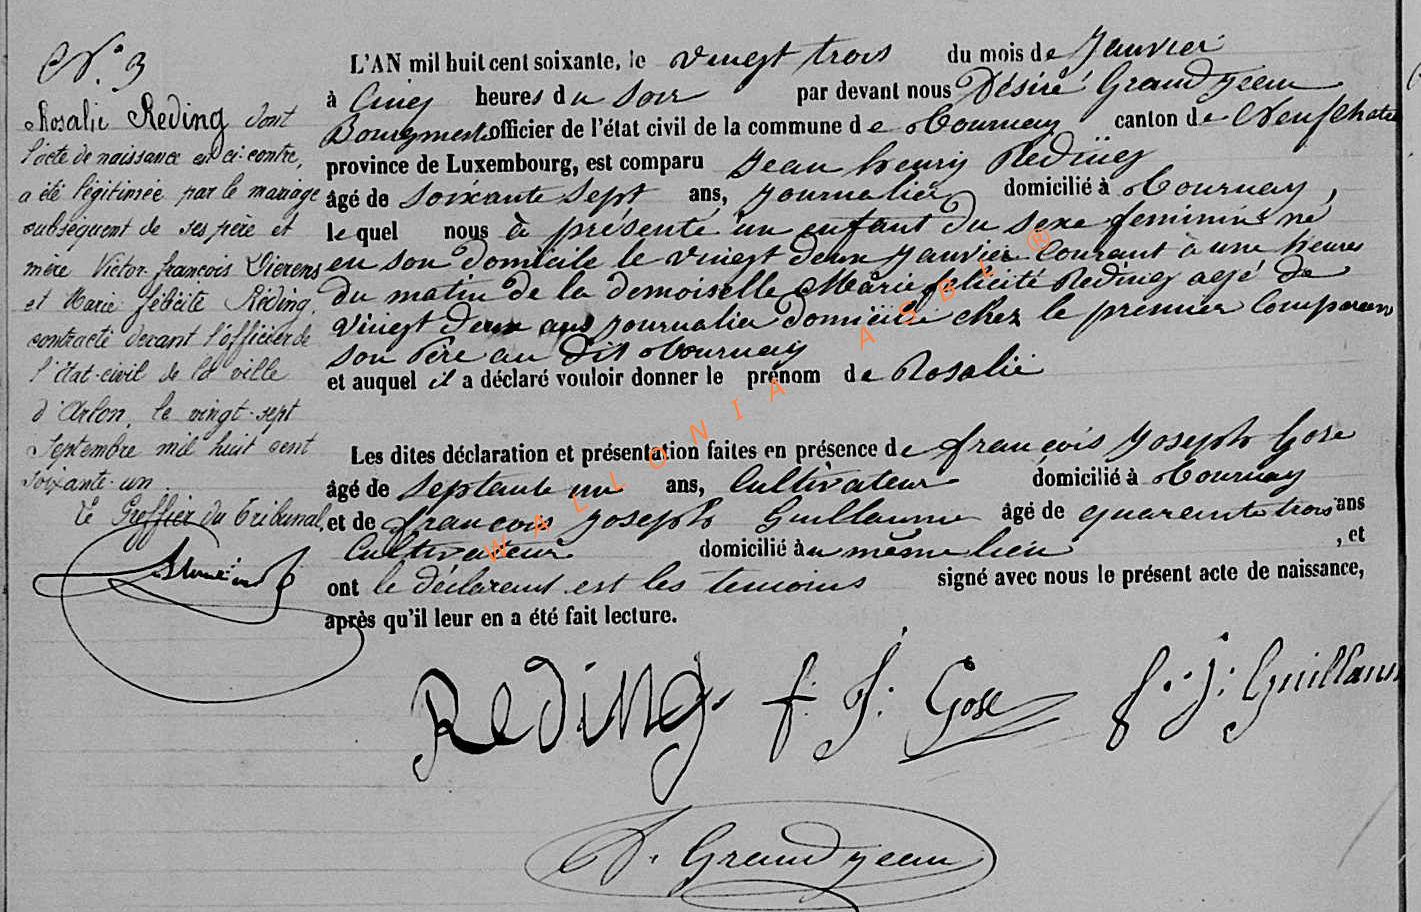 N.° 3
Rosalie Reding dont
l'acte de naissance est ci-contre,
a été légitimée par le mariage
subséquent de ses père et
mère Victor-françois Dierens
et Marie félicité Réding,
contracté devant l'officier de
l'état-civil de la ville
d'Arlon, le vingt-sept
Septembre mil huit cent
soixante-un.
Le Greffier du Tribunal,
L'AN mil huit cent soixante, le vingt trois du mois de Janvier
à Cinq heures du soir par devant nous Désiré Grandjean
Bourgmest officier de l'état civil de la commune de Tournay canton de Neufchateau
province de Luxembourg, est comparu Jean henry Reding
âgé de soixante sept ans, journalier domicilié à Tournay,
le quel nous à présenté un enfant du sexe feminin né
en son domicile le vingt deux Janvier Courant à une heures
du matin de la demoiselle Marie felicité Reding agé de
vingt deux ans journalier domicilié chez le premier Comparan
son Père au dit Tournay
et auquel il a déclaré vouloir donner le prénom de Rosalie
Les dites déclaration et présentation faites en présence de françois Joseph Gose
âgé de septante un ans, Cultivateur domicilié à Tournay
et de françois Joseph Guillaume âgé de quarente trois ans
Cultivateur domicilié au même lieu , et
ont le déclarent est les temoins signé avec nous le présent acte de naissance,
après qu'il leur en a été fait lecture.
Reding f. J. Gose f. J. Guillaum
D. Grandjean
WALLONIA ASBL ®